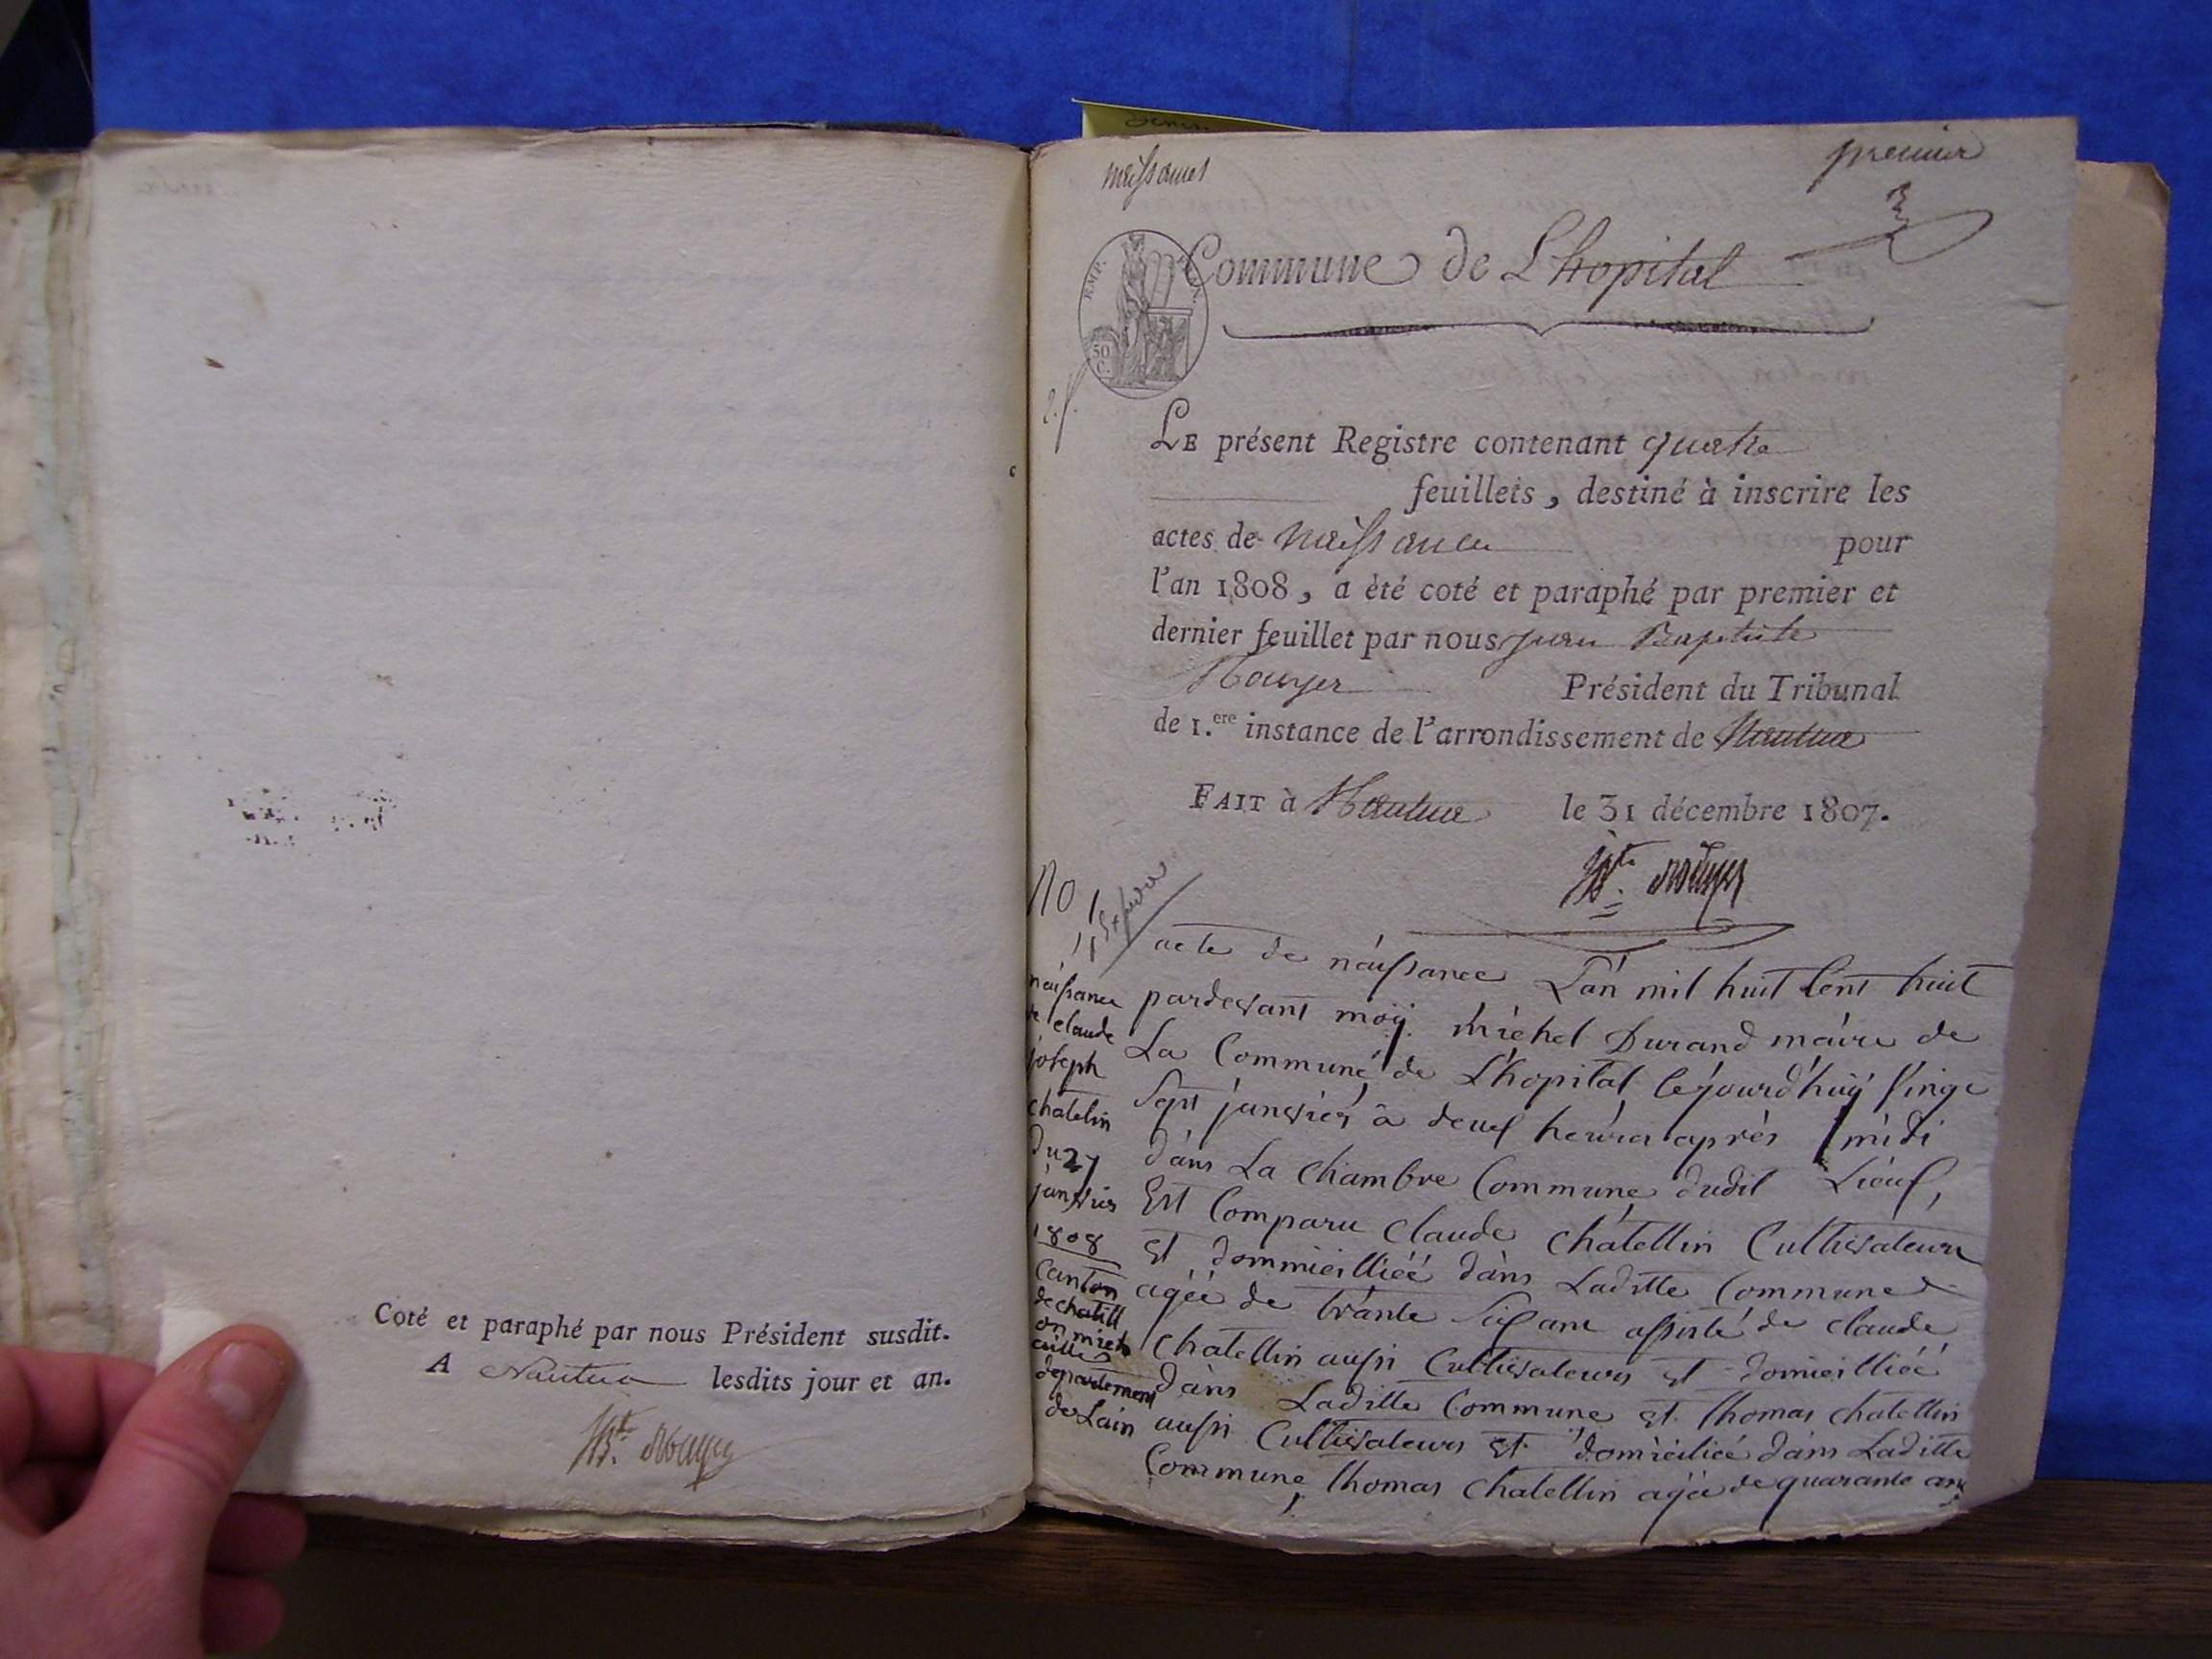 Coté et paraphé par nous Président susdit.
A Nantua lesdits jour et an.
Bte.
naissances
premier
EMP.
50
C.
Commune de Lhopital
LE présent Registre contenant quatre
feuillets, destiné à inscrire les
actes de naissance pour
l'an 1808, a èté coté et paraphé par premier et
dernier feuillet par nous jean Baptiste
Président du Tribunal
de 1.ere instance de l'arrondissement de Nantua
FAIT à Nantua le 31 décembre 1807.
No 1
naissance
de claude
joseph
chatelin
du 27
janvier
1808
Canton
de chatill
on mich
aille
departement
de Lain
acte de naissance L'an mil huit Cent huit
pardevant moÿ michel Durand maire de
La Commune de L'hopital cejourd'huÿ vingt
Sept janvier à deux heures après midi
dans La chambre Commune dudit Lieux,
Est Comparu claude chatellin Cultivateur
et dommicilliéé dans Laditte Commune
agéé de trante Six ans assisté de claude
chatellin aussi Cultivateur et domicilliéé
dans Laditte Commune et thomas chatellin
aussi Cultivateur et domiciliéé dans Laditte
Commune, thomas chatellin agéé de quarante ans